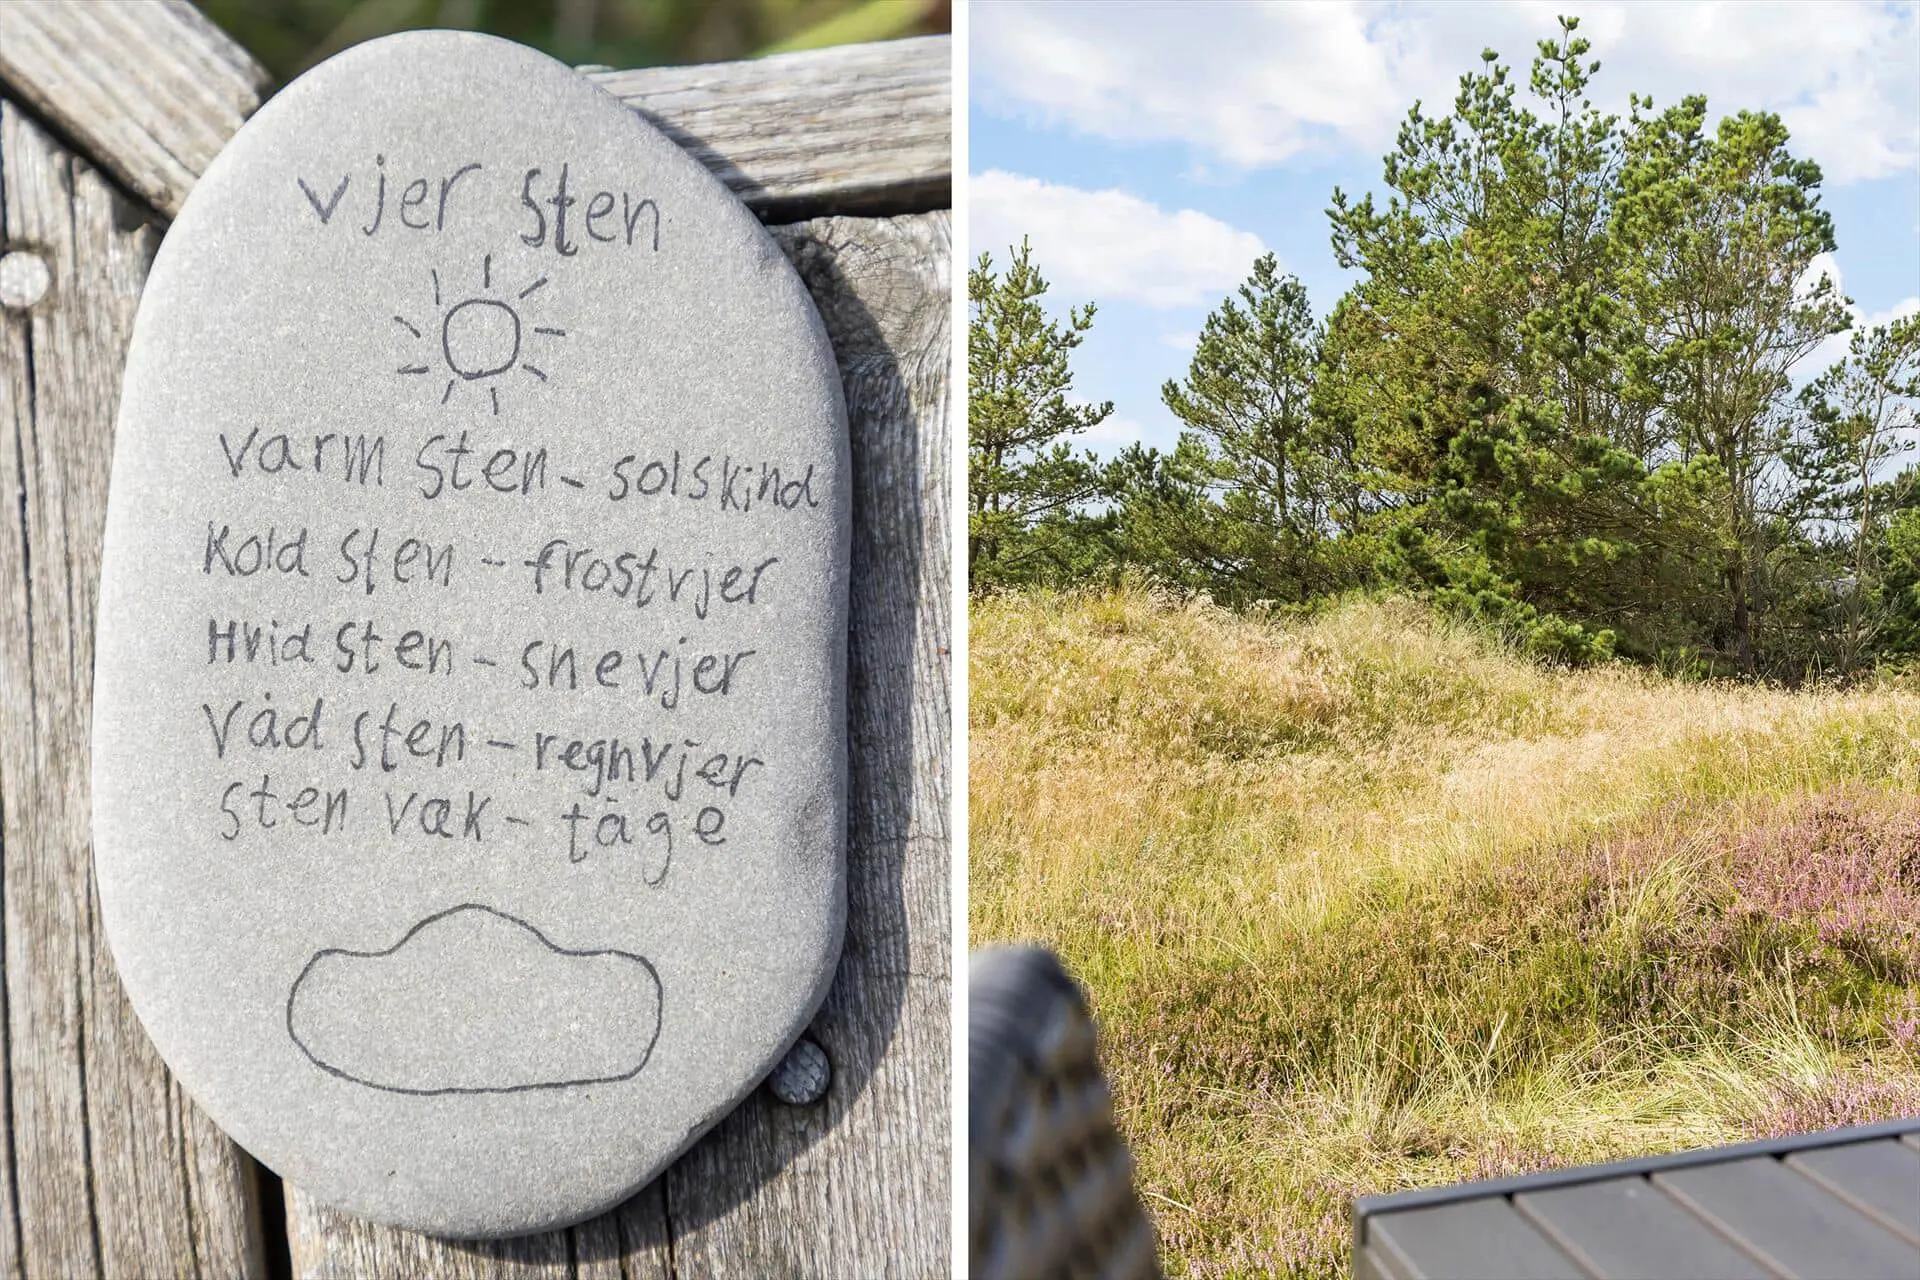 vjer sten
varm sten - solskind
Kold sten - frostvjer
Hvid sten - snevjer
Våd sten - regnvjer
sten væk - tåge